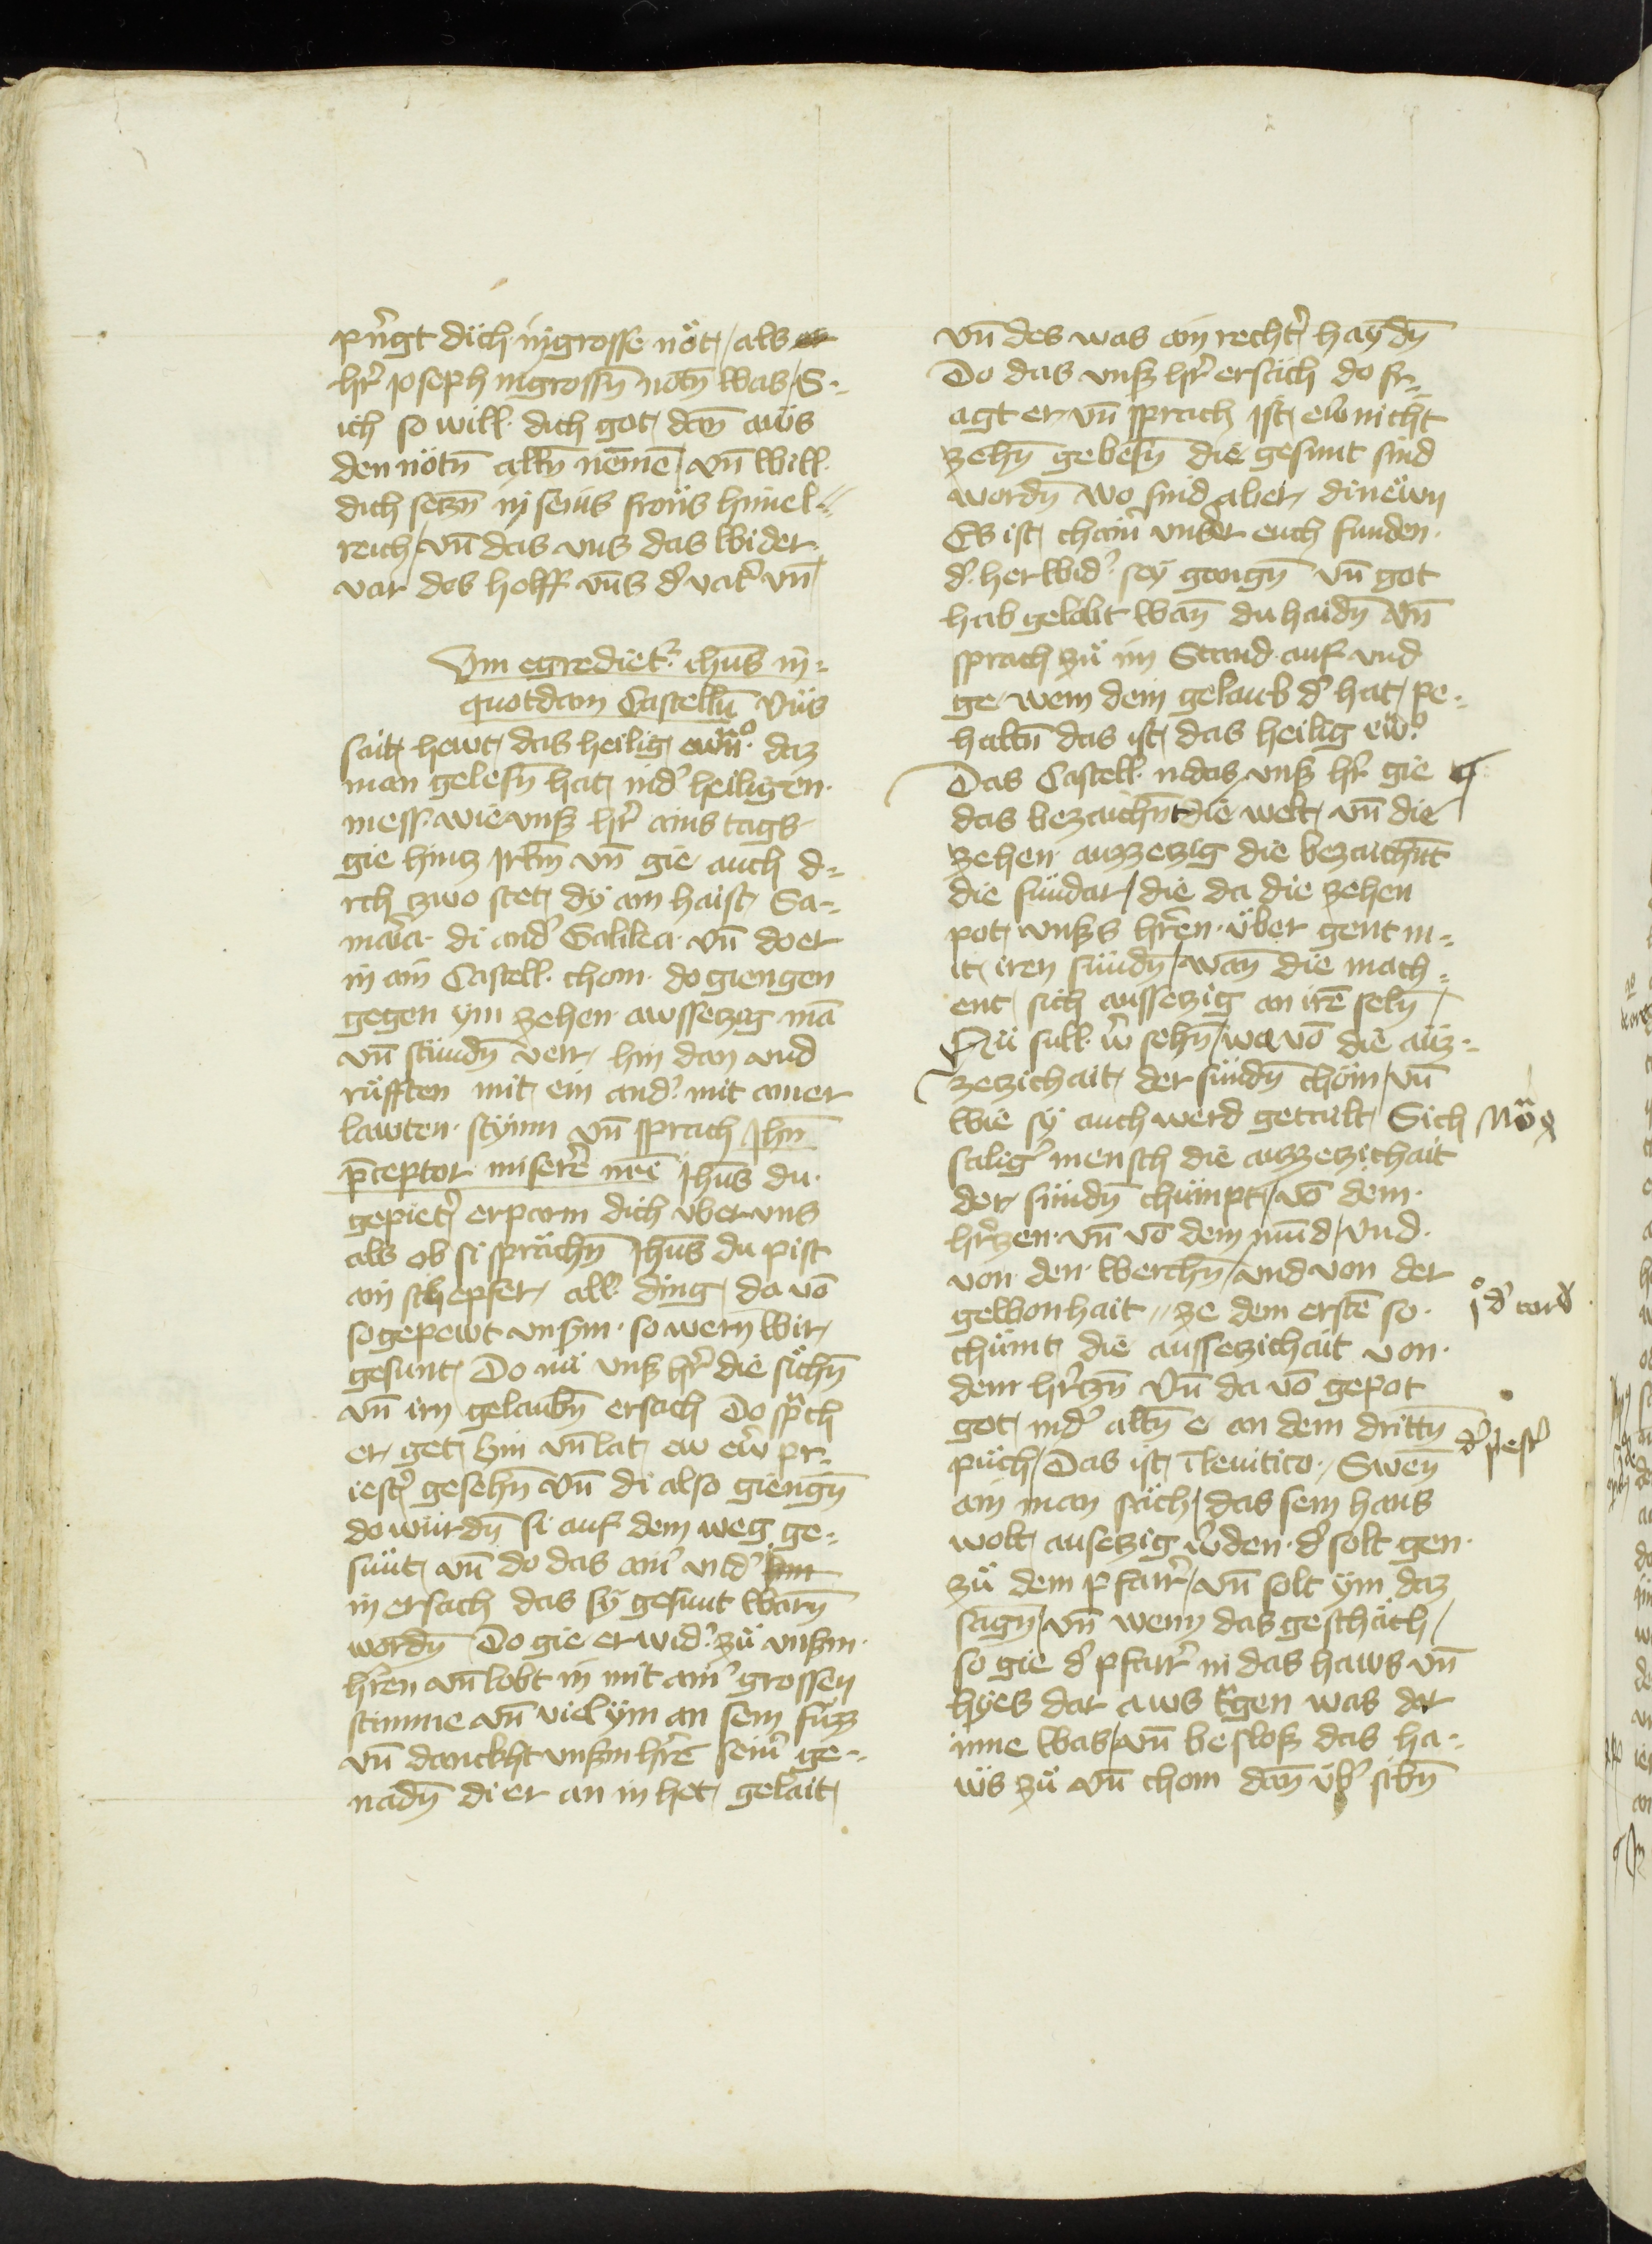 pringt dich in grosse nöt / als
hr̄ ioseph in grossn̄ nötn̄ was / S-
ich so will dich got dan̄ aüs
den nötn̄ alln̄ nēmē / vn̄ will
dich setzn̄ in seins frons himel=
reich / vn̄ das vns das wider
var des helff vn̄s d' vat' vn̄
Vm egrediet' ihūs in̄=
quotdam Castellū Vns
sait hewt das heilig ew̄n̄o daz
man gelesn̄ hat in d' heiligen
mess wie vnß hr̄ ains tags
gie hincz irlm̄ vn̄ gie auch d=
rch zwo stet dy ain haist Sa=
maria di and' Galilea vn̄ do er
in ain Castell chom do giengen
gegen ym zehen awssetzig mā
vn̄ stündn̄ verr hin dan vnd
rüfften mit ein and' mit ainer
lawten stymm vn̄ sprach Ihū
p̄ceptor miserē nr̄i Ihūs du
gepiet' erparm dich vber vns
als ob si sprächn̄ Ihūs du pist
ain schepfer all' ding da vō
so gepewt vnsm so wern wir
gesunt Do nü vnß hr̄ die sichn̄
vn̄ irn gelaubn̄ ersach Do sp̄ch
er get hin vn̄ lat ew ew̄ pr=
iest' gesehn̄ vn̄ di also giengn̄
do würdn̄ si auf dem weg ge=
sunt vn̄ do das ain' vnd'
in ersach das sy gesunt warn̄
wordn̄ Do gie er wid' zü vnßm
hr̄en vn̄ lobt in mit ain' grossen
stimme vn̄ viel ym an sein füzz
vn̄ danckht vnßm hr̄e sein' ge=
nadn̄ di er an in het gelait
vn̄ des was ain recht' haydn̄
Do das vnß hr̄ ersäch do fr=
agt er vn̄ sprach Ist ew̄ nicht
zehn̄ gebesn̄ die gesunt sind
wordn̄ wo sind aber di newn
Es ist chain' vnder euch funden
d' her wid' sey gangn̄ vn̄ got
hab gelobt wan̄ du haidn̄ vn̄
sprach zü im Stand auf vnd
ge wem dein gelaub d' hat pe=
haltn̄ das ist das heilig ew̄o
Das Castell in das vnß hr̄ gie
das bezaichn̄t die welt vn̄ die
zehen auzzetzig die bezaichn̄t
die sündar / die da die zehen
pot vnßs hr̄en über gent m=
it iren sündn̄ / wan̄ die mach=
ent sich aussetzig an irē seln̄ /
Nü süll w̄ sehn̄ / wa vō die auz=
zetzichait der sündn̄ chöm / vn̄
wie sy auch werd getailt Sich
salig' mensch die auzzetzichait
der sündn̄ chümpt / vō dem
hr̄zen vn̄ vō dem mūnd / vnd
von den werchn̄ / vnd von der
gewonhait // ze dem erstē so
chümt die aussetzichait von
dem hr̄tzn̄ Vn̄ da vō gepot
got in d' altn̄ e an dem drittn̄
püch / Das ist ī leuitico / Swen̄
ain man sach / das sein haus
wolt ausetzig w̄den d' solt gen
zü dem pfarr' / vn̄ solt ym daz
sagn̄ / vn̄ wenn das geschäch /
so gie d' pfarr' in das haws vn̄
hyes dar aws tr̄gen was dar
inne was / vn̄ besloß das ha=
ws zü vn̄ chom dan̄ üb' sibn̄